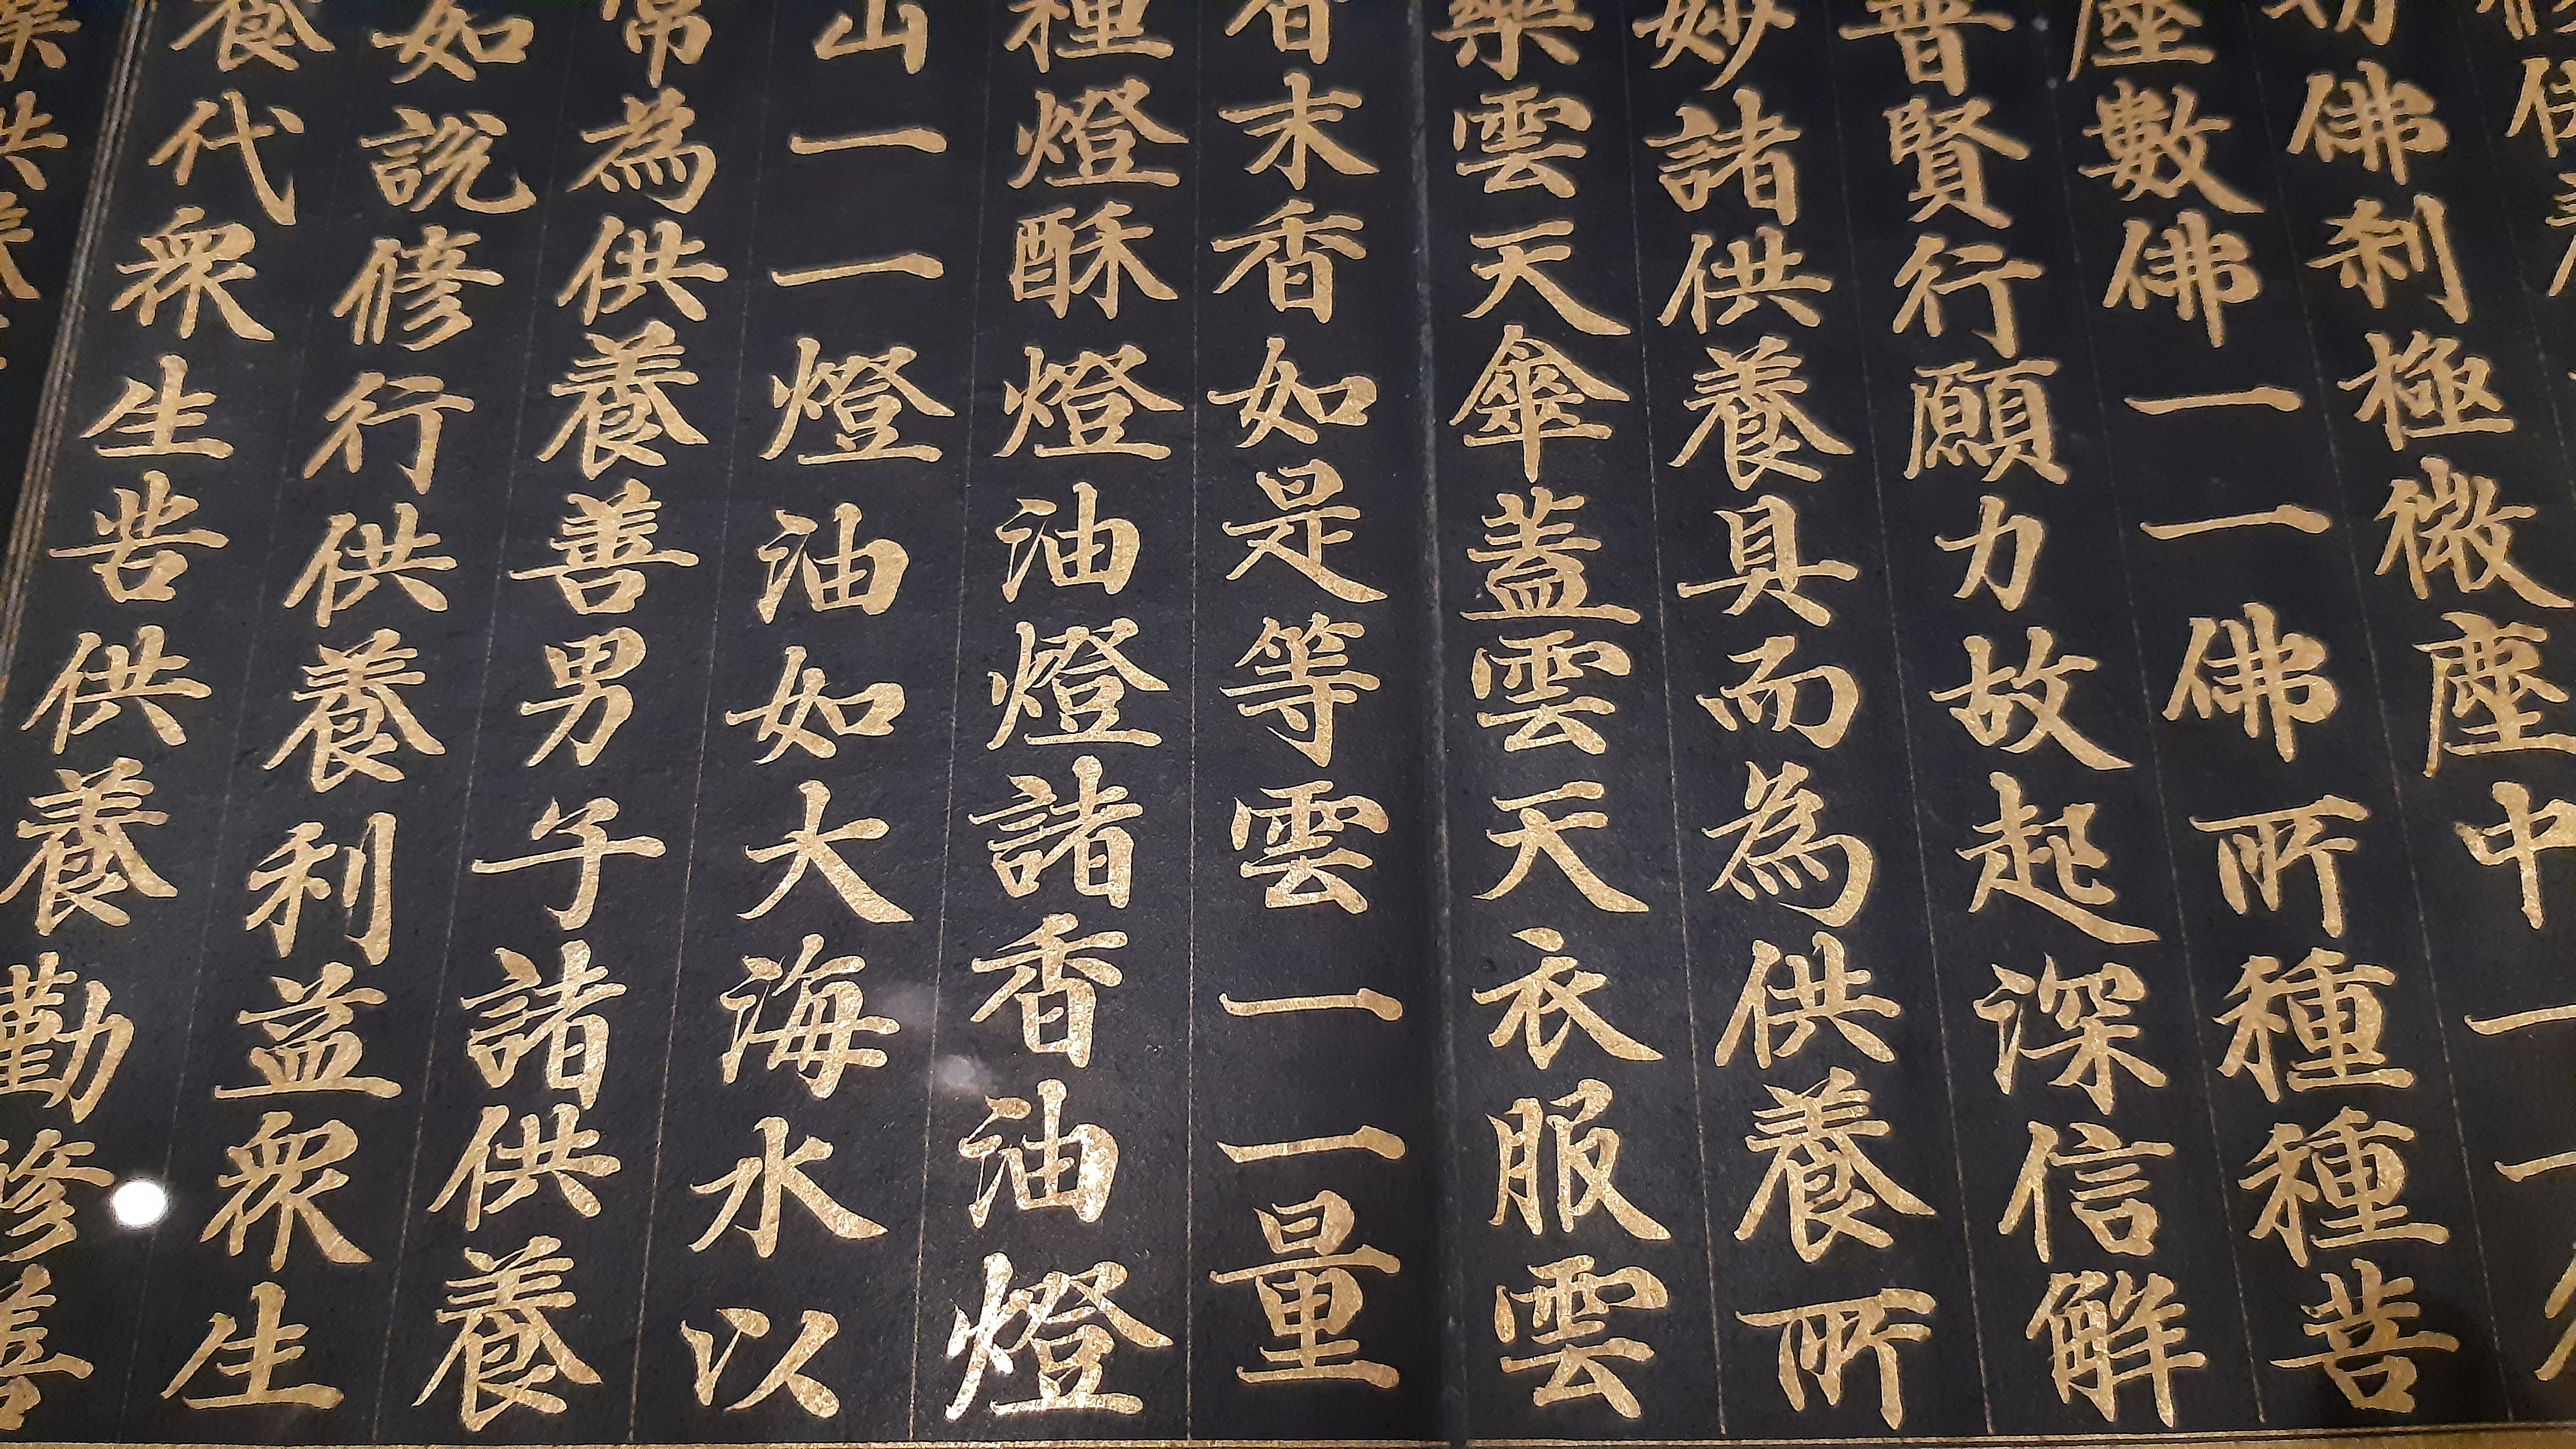 切佛刹極微塵中一一
塵數佛一一佛所種種菩
普賢行願力故起深信解
妙諸供養具而為供養所
樂雲天傘蓋雲天衣服雲
香末香如是等雲一一量
種燈酥燈油燈諸香油燈
山一一燈油如大海水以
常為供養善男子諸供養
如說修行供養利益眾生
養代眾生苦供養勤修善